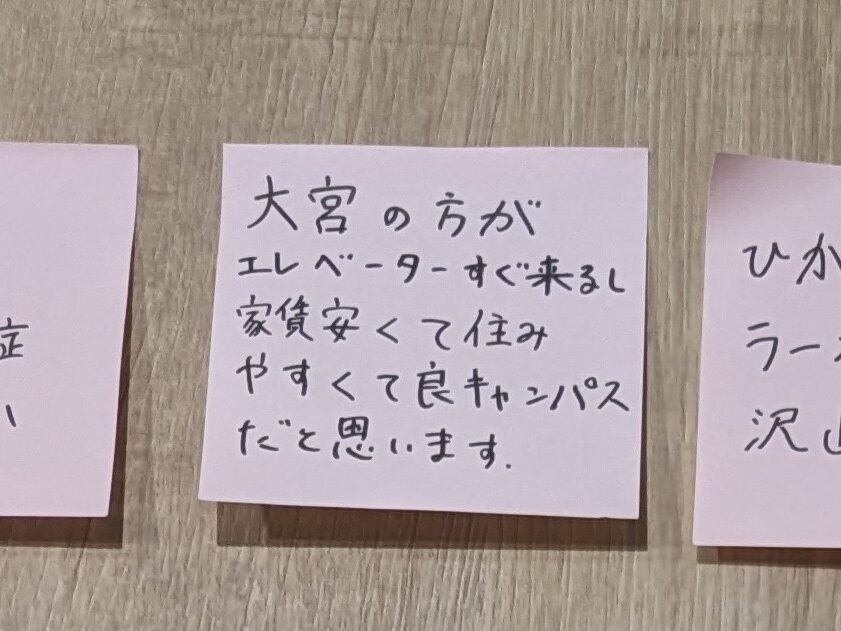 大宮の方が
エレベーターすぐ来るし
家賃安くて住み
やすくて良キャンパス
だと思います.
症
い
ひか
ラー
沢山